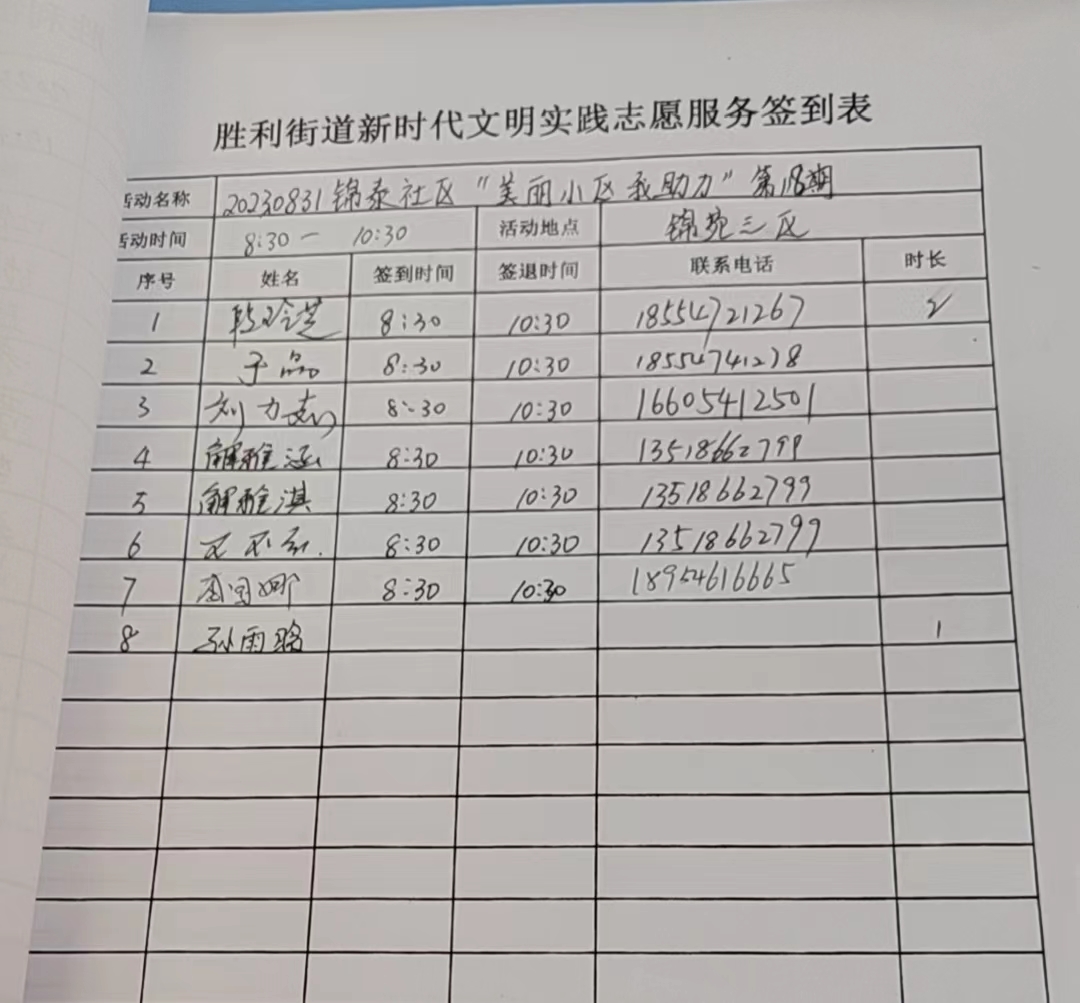 胜利街道新时代文明实践志愿服务签到表
活动名称 20230831锦泰社区“美丽小区我助力”第18期
活动时间 8:30一 10:30 活动地点 锦苑三区
序号 姓名 签到时间 签退时间 联系电话 时长
1 8:30 10:30 18554721267 2
2 于晶 8:30 10:30 18554741278
3 刘力 8:30 10:30 16605412501
4 解雅涵 8:30 10:30 13518662799
5 解雅淇 8:30 10:30 13518662799
6 8:30 10:30 13518662799
7 8:30 10:30 18954616665
8 孙雨 1